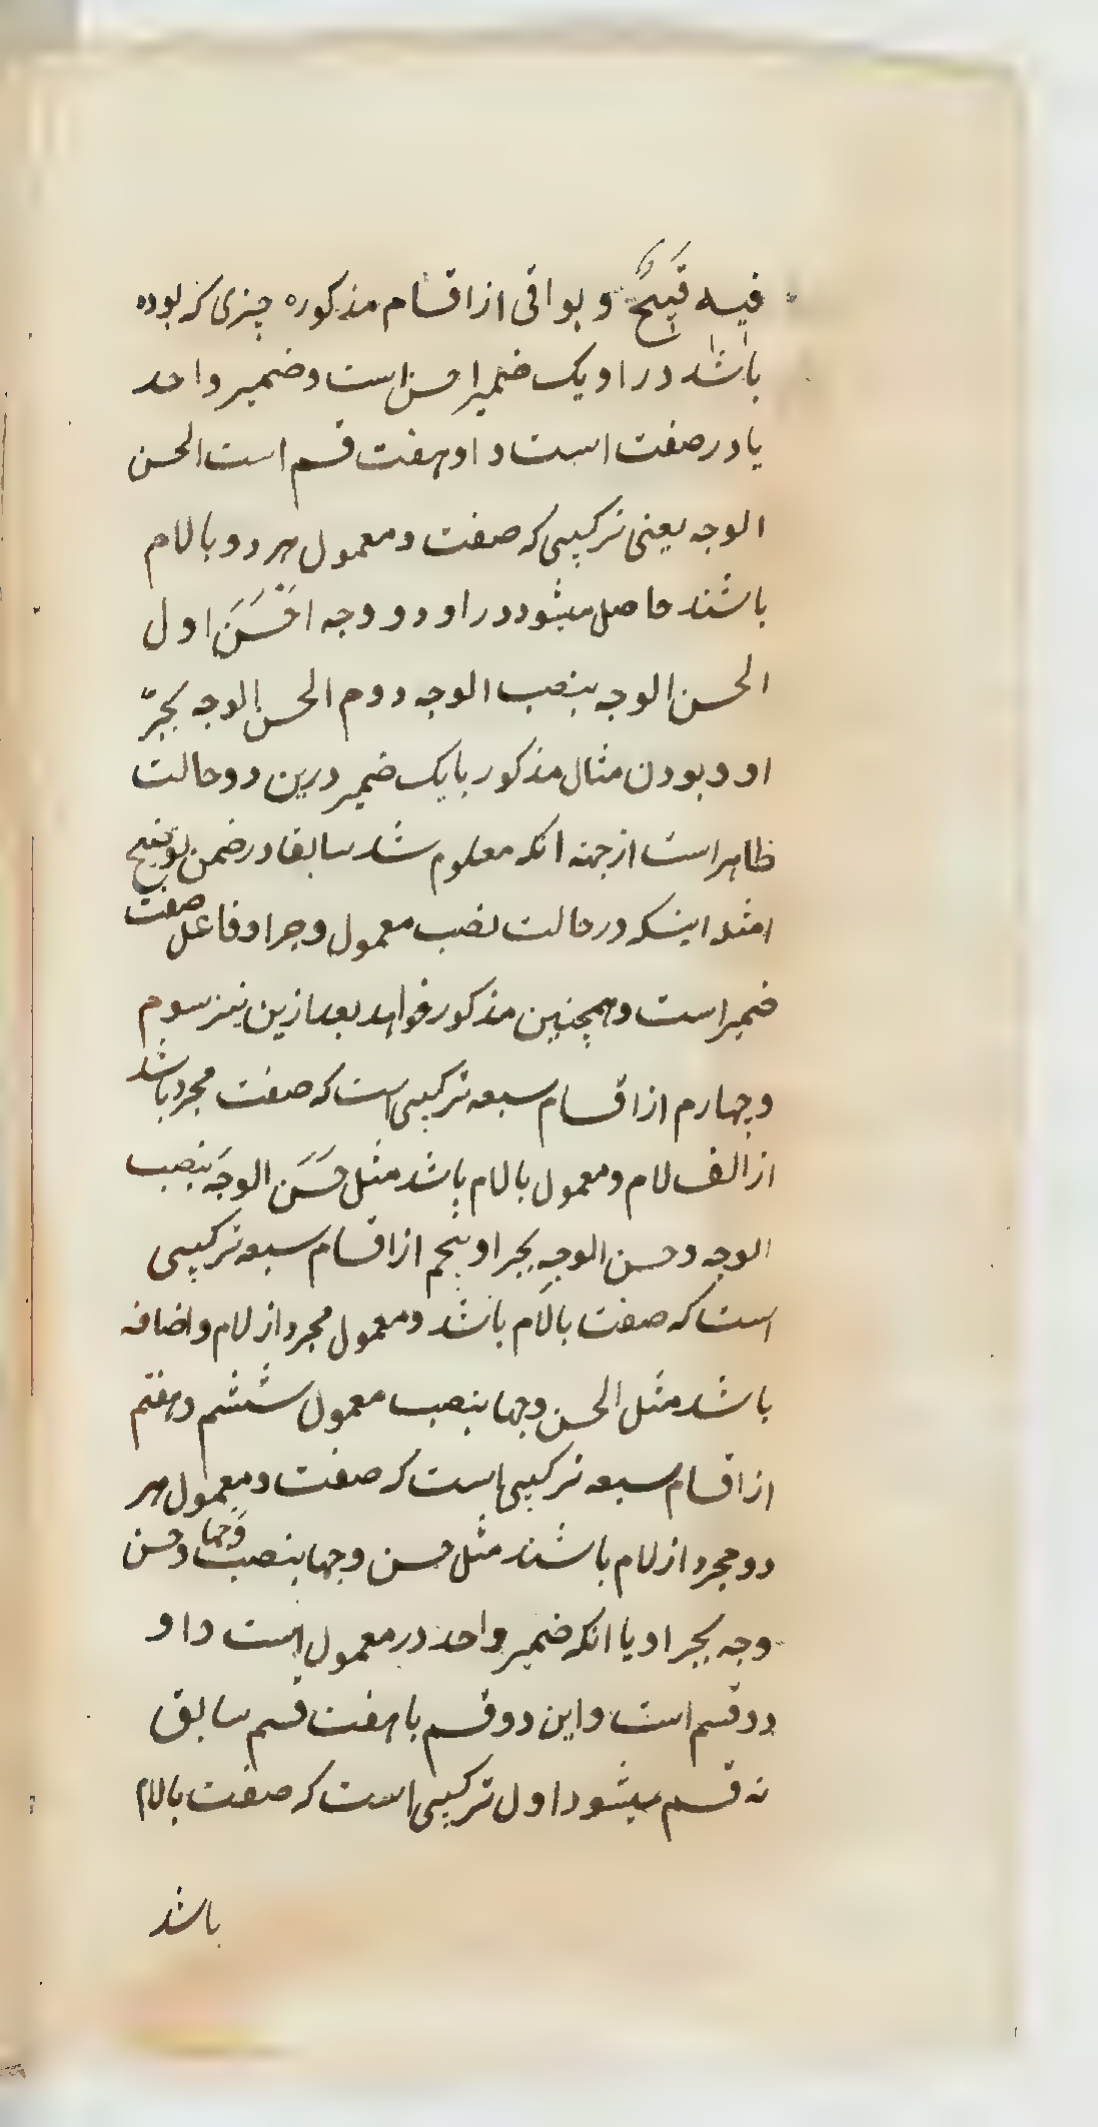 فیه قَبِیحٌ و بواقی از اقسام مذکوره چیزی که بوده
باشد در او یک ضمیر احسن است و ضمیر واحد
یا در صفت است و او هفت قسم است الحسن
الوجه یعنی ترکیبی که صفت و معمول هر دو بالام
باشند حاصل میشود در او دو وجه احَسَنَ اول
الحسن الوجه بنصب الوجه دوم الحسن الوجه بجرّ
او و بودن مثال مذکور بایک ضمیر درین دو حالت
ظاهر است از جهته انکه معلوم شد سابقا در ضمن توضیح
امثله اینکه در حالت نصب معمول و جر او فاعل صفت
ضمیر است و همچنین مذکور خواهد بعد ازین نیز سوم
و چهارم از اقسام سبعه ترکیبی است که صفت مجرد باشد
از الف لام و معمول بالام باشد مثل حَسَن الوجهَ بنصب
الوجه و حسن الوجهِ بجر او پنجم از اقسام سبعه ترکیبی
است که صفت بالام باشد و معمول مجرد از لام و اضافه
باشد مثل الحسن وجها بنصب معمول ششم و هفتم
از اقسام سبعه ترکیبی است که صفت و معمول هر
دو مجرد از لام باشند مثل حسن وجها بنصب وجها و حسن
وجه بجر او یا انکه ضمیر واحد در معمول است و او
دو قسم است و این دو قسم با هفت قسم سابق
نه قسم میشود اول ترکیبی است که صفت بالام
باشد